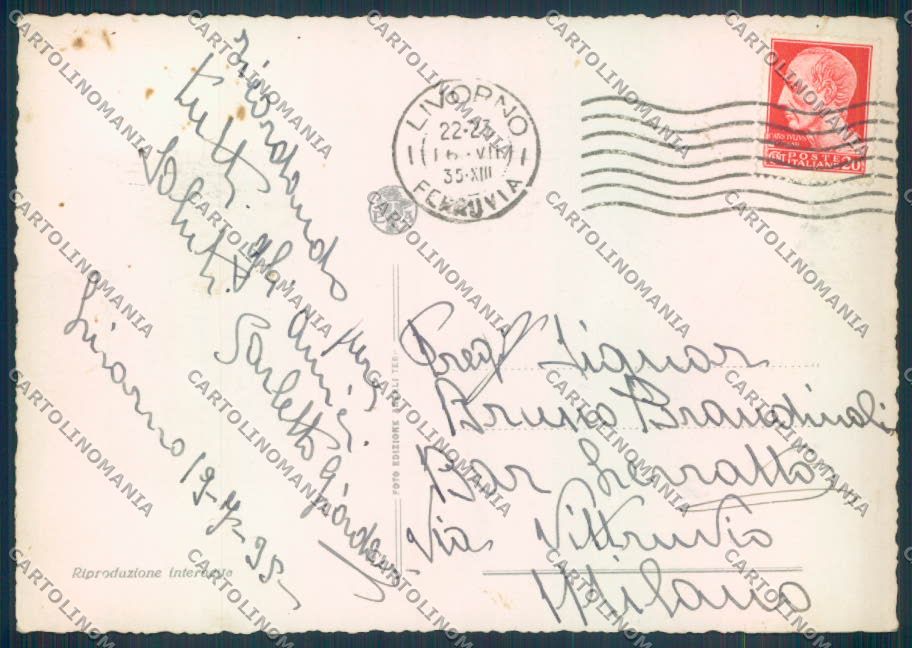 ricordando
tutti.
Saluti. Gli amici
Carletto Giordano
Livorno 19-7-35
LIVORNO
22-23
16·VII
35·XIII
FERROVIA
POSTE
ITALIANE
20
Preg. Signor
Bruno Brandinali
Bar
Via Vittruvio
Milano
FOTO EDIZIONE
Riproduzione interdetta
CARTOLINOMANIA